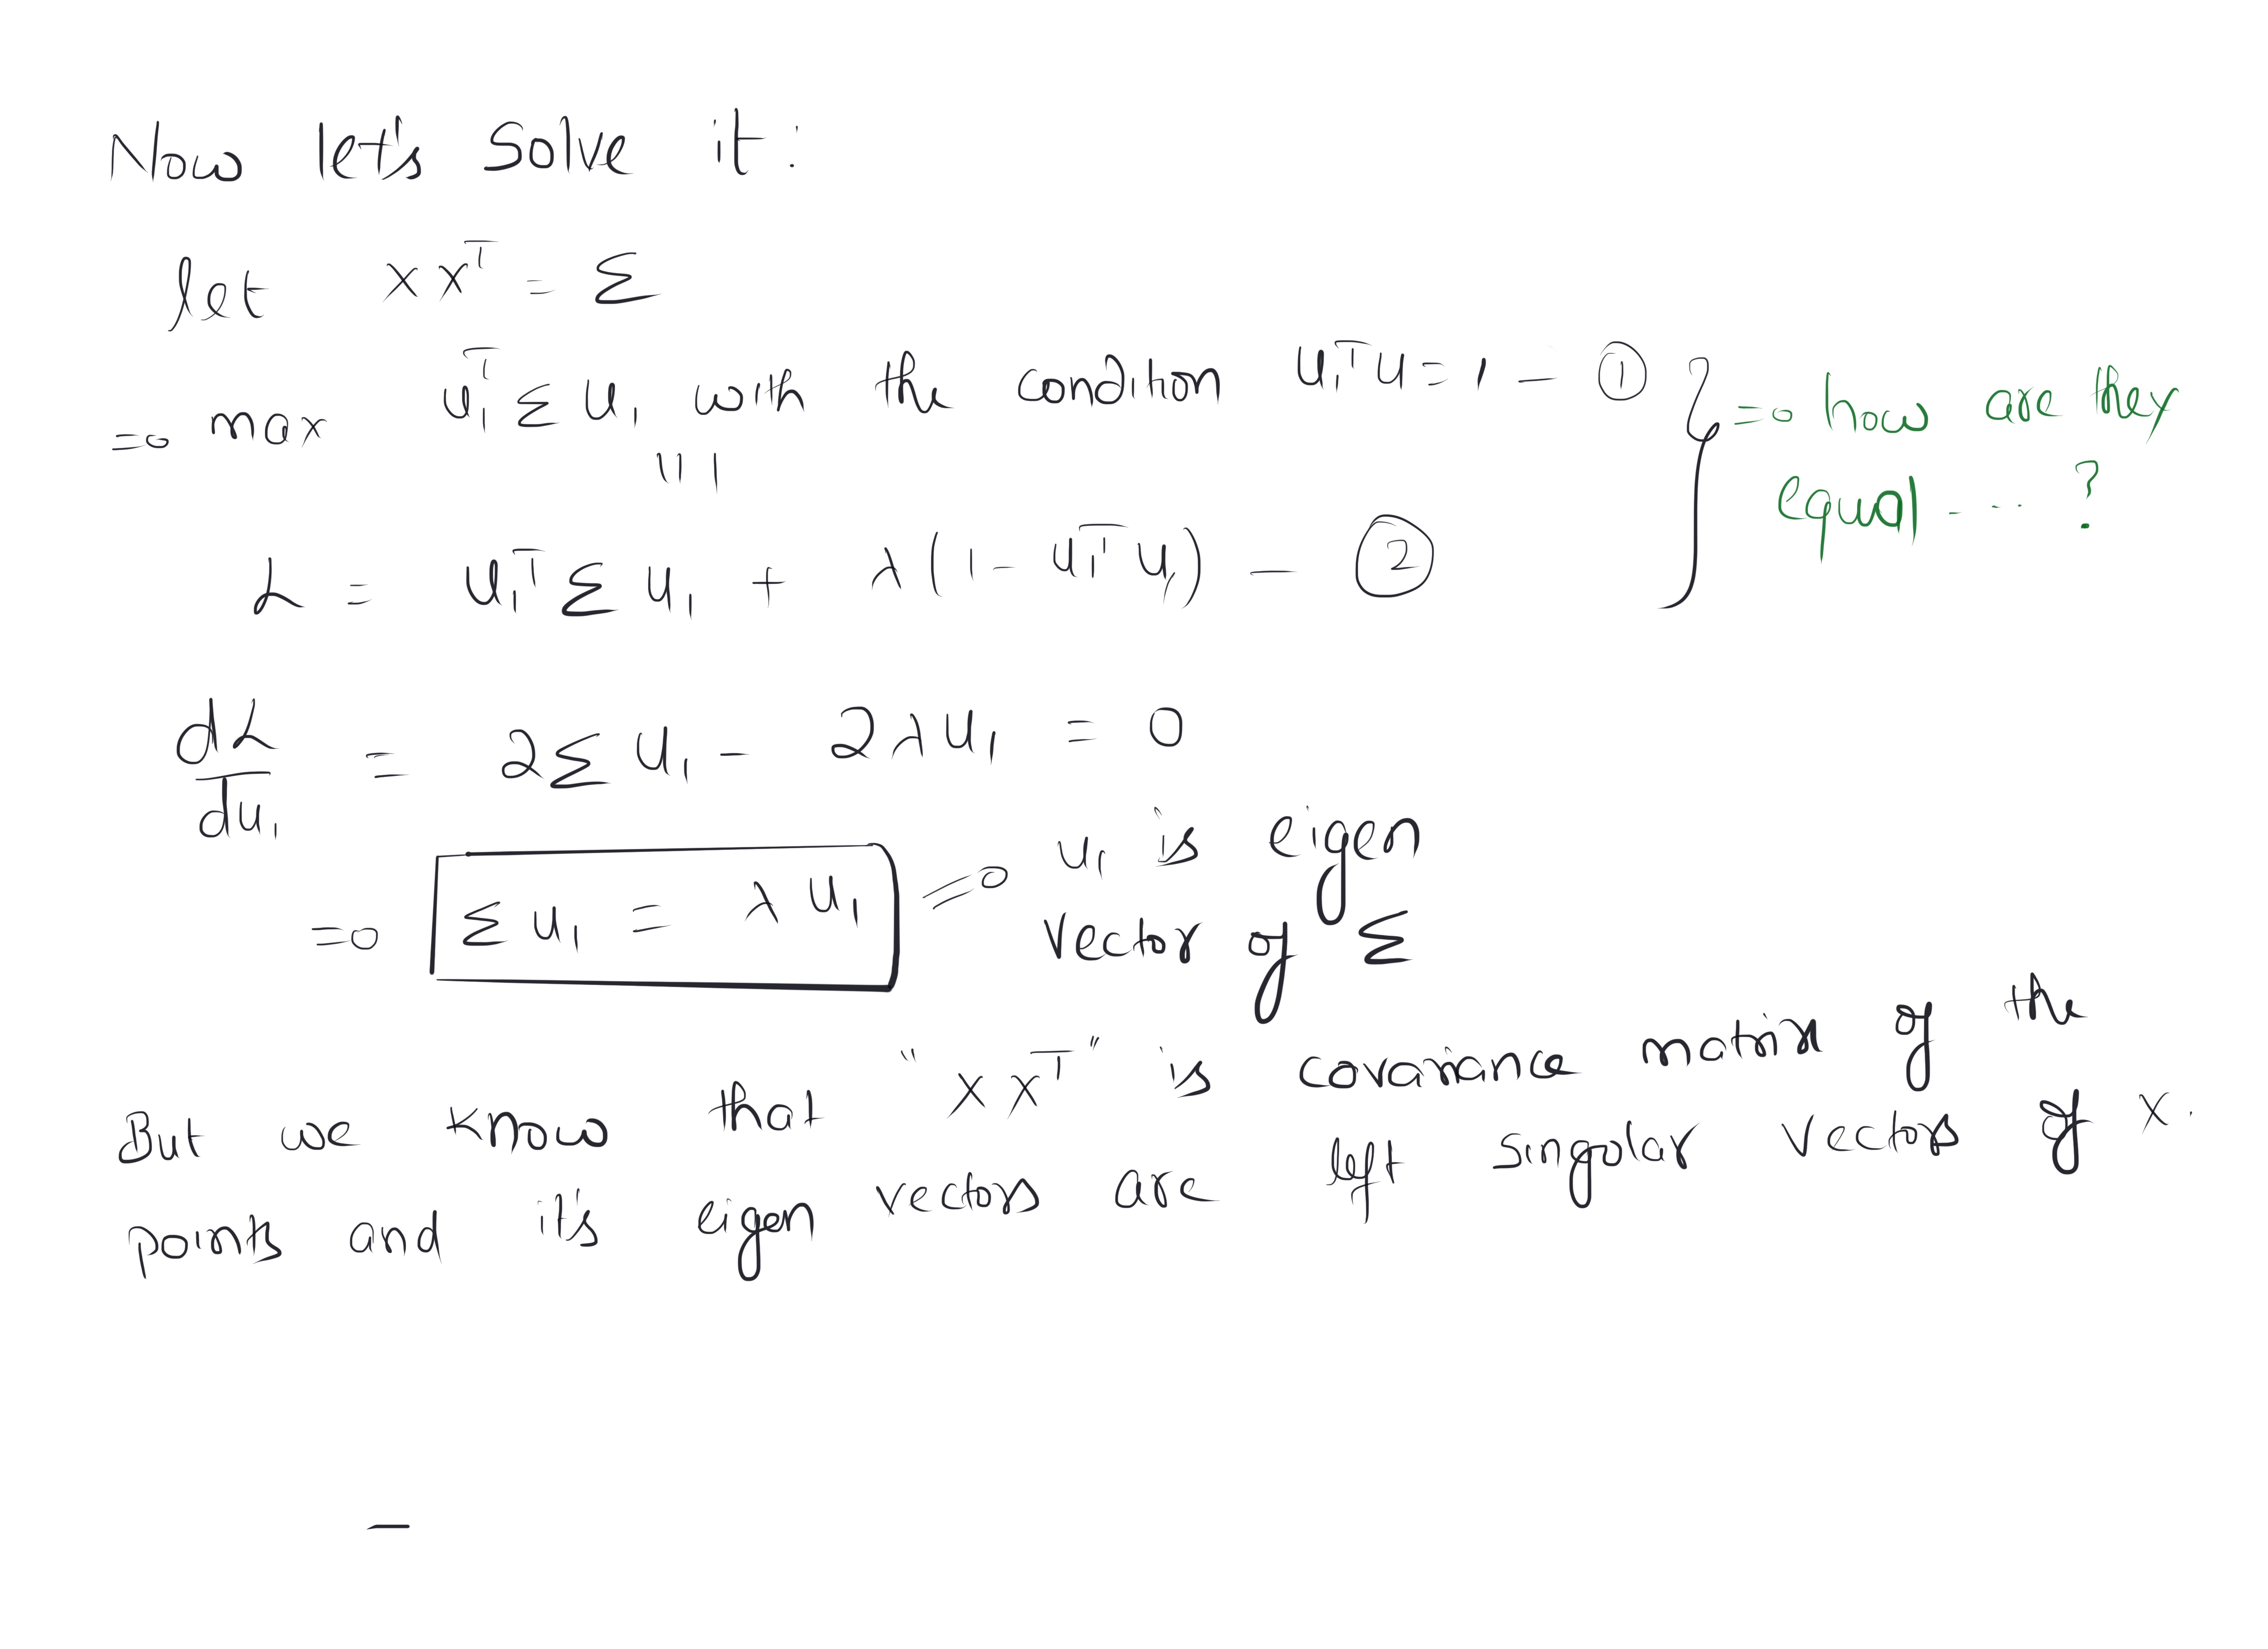 Now let's solve it:
let XXᵀ = Σ
⇒ max u₁ᵀ Σ u₁ with the condition u₁ᵀu = 1 — ① } ⇒ how are they
equal - - - - ?
|||
L = u₁ᵀ Σ u₁ + λ(1 - u₁ᵀu₁) — ②
dL/du₁ = 2Σu₁ - 2λu₁ = 0
⇒ Σu₁ = λu₁ ⇒ u₁ is eigen
vector of Σ
But we know that "XXᵀ" is covariance matrix of the
points and it's eigen vectors are left singular vectors of X.